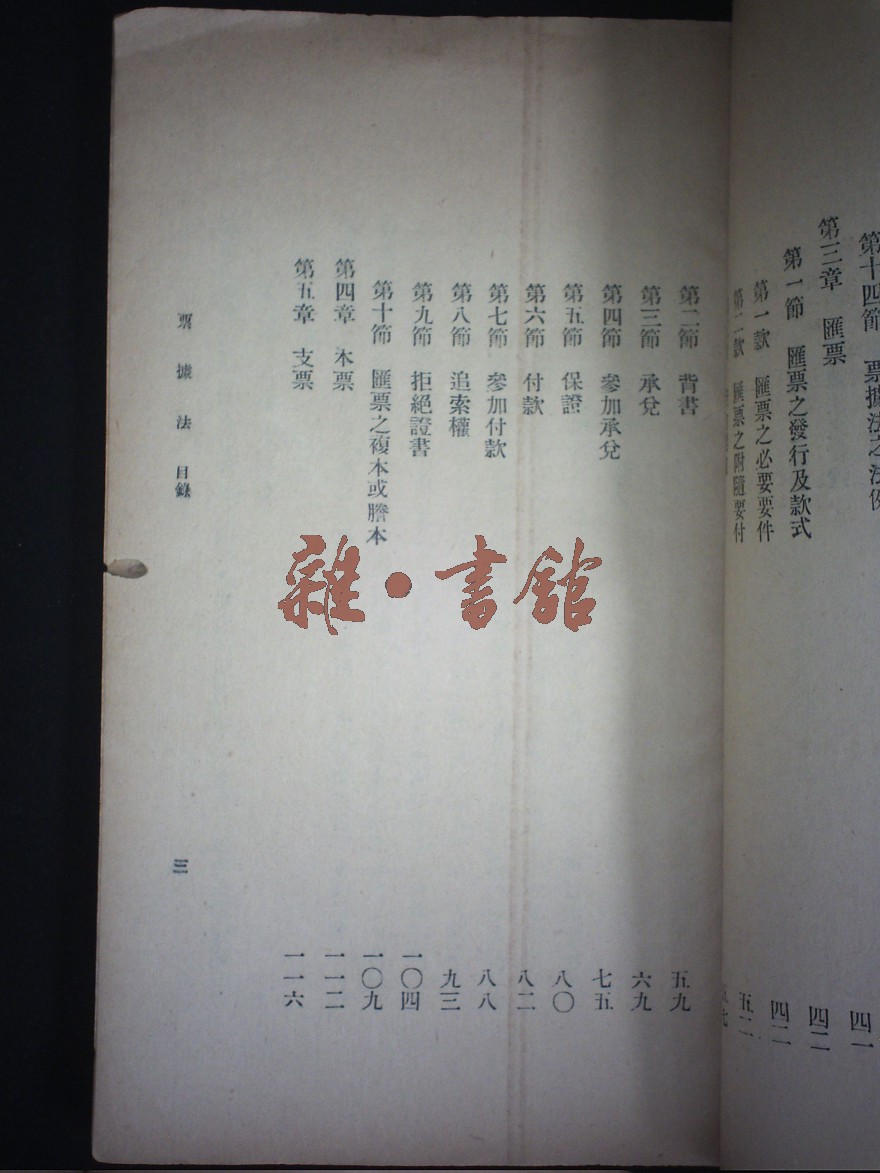 第十四節 票據法之法例 四一
第三章 匯票 四二
第一節 匯票之發行及款式 四二
第一款 匯票之必要要件
第二款 匯票之附隨要付 五二
第二節 背書 五九
第三節 承兌 六九
第四節 參加承兌 七五
第五節 保證 八〇
第六節 付款 八二
第七節 參加付款 八八
第八節 追索權 九三
第九節 拒絕證書 一〇四
第十節 匯票之複本或謄本 一〇九
第四章 本票 一一二
第五章 支票 一一六
票據法 目錄 三
雜·書館